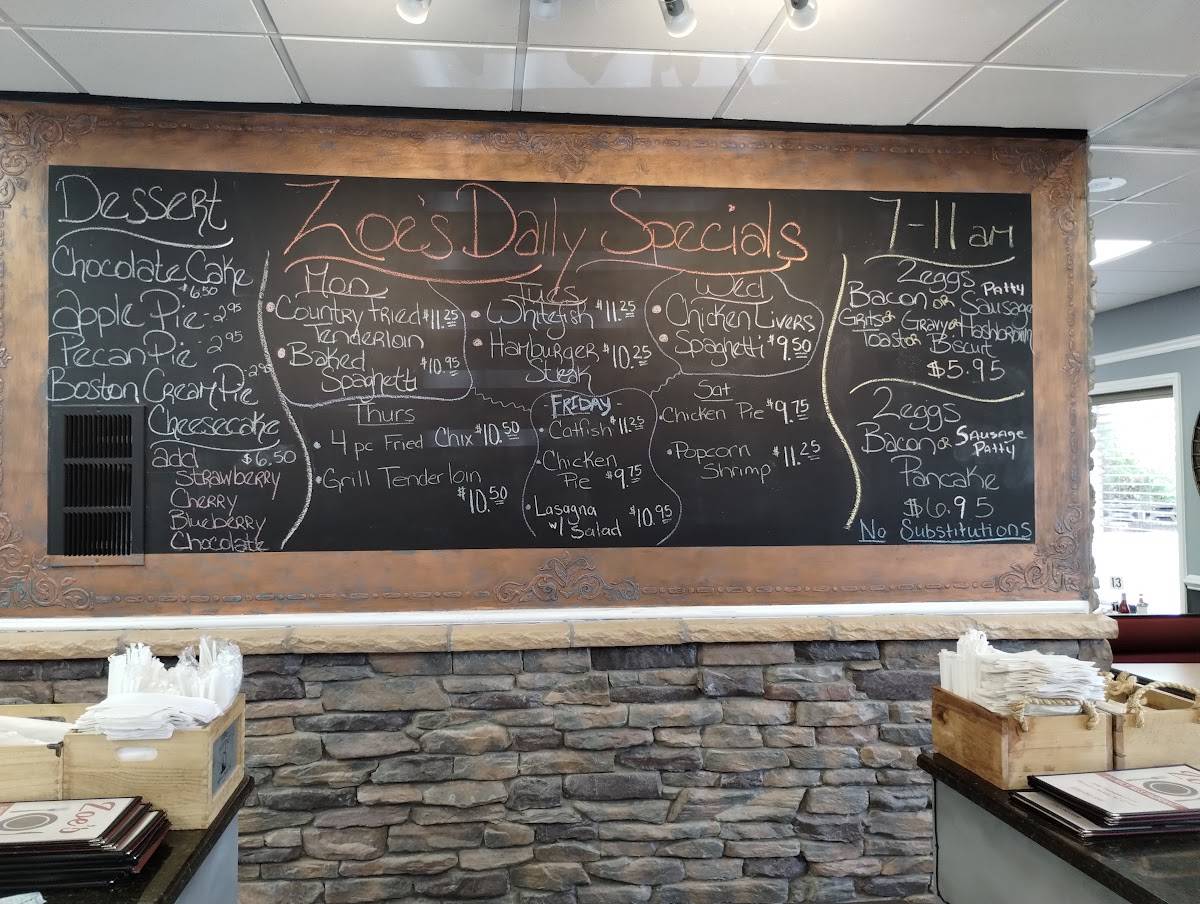 Dessert
Chocolate Cake
$6.50
Apple Pie - 2.95
Pecan Pie - 2.95
Boston Cream Pie - 2.95
Cheesecake
$6.50
add
Strawberry
Cherry
Blueberry
Chocolate
Zoe's Daily Specials
Mon
• Country Fried $11.25
Tenderloin
• Baked $10.95
Spaghetti
Tues
• Whitefish $11.25
• Hamburger $10.25
Steak
Wed
• Chicken Livers
• Spaghetti $9.50
Thurs
• 4 pc Fried Chix $10.50
• Grill Tenderloin
$10.50
FRIDAY
• Catfish $11.25
• Chicken
Pie $9.75
• Lasagna $10.95
w/ Salad
Sat
• Chicken Pie $9.75
• Popcorn $11.25
Shrimp
7-11 am
2 eggs
Bacon or Sausage Patty
Grits or Gravy or Hashbrown
Toast or Biscuit
$5.95
2 eggs
Bacon or Sausage Patty
Pancake
$6.95
No Substitutions
13
Zoe's